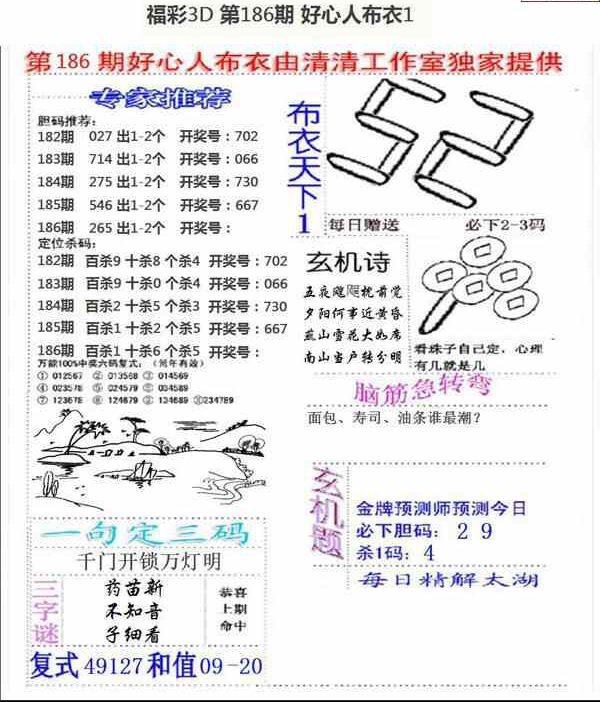 福彩3D 第186期 好心人布衣1
第186期好心人布衣由清清工作室独家提供
专家推荐
胆码推荐:
182期 027 出1-2个 开奖号:702
183期 714 出1-2个 开奖号:066
184期 275 出1-2个 开奖号:730
185期 546 出1-2个 开奖号:667
186期 265 出1-2个 开奖号:
定位杀码:
182期 百杀9 十杀8 个杀4 开奖号:702
183期 百杀9 十杀0 个杀4 开奖号:066
184期 百杀2 十杀5 个杀3 开奖号:730
185期 百杀1 十杀2 个杀2 开奖号:667
186期 百杀1 十杀6 个杀5 开奖号:
万能100%中奖六码复式:(常年有效)
① 012567 ② 013568 ③ 014569
④ 023578 ⑤ 024579 ⑥ 034589
⑦ 123678 ⑧ 124679 ⑨ 134689 ⑩234789
一句定三码
千门开锁万灯明
三字谜
药苗新
不知音
子细看
恭喜
上期
命中
复式49127和值09-20
布衣天下1
52
每日赠送 必下2-3码
玄机诗
五夜飕飕枕前觉
夕阳何事近黄昏
燕山雪花大如席
南山当户转分明
看珠子自己定,心理
有几就是几
脑筋急转弯
面包、寿司、油条谁最潮?
玄机题
金牌预测师预测今日
必下胆码:29
杀1码:4
每日精解太湖